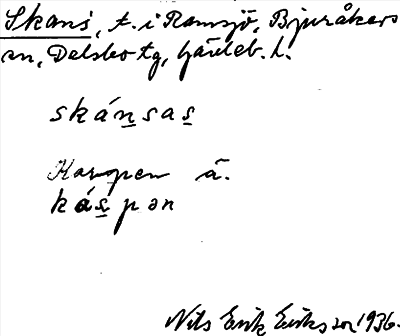 Skans, t. i Ramsjö, Bjuråkers
sn, Delsbo tg, Gävleb. l.
skánsas
Karspen ä.
káspən
Nils Erik Eriksson 1936.